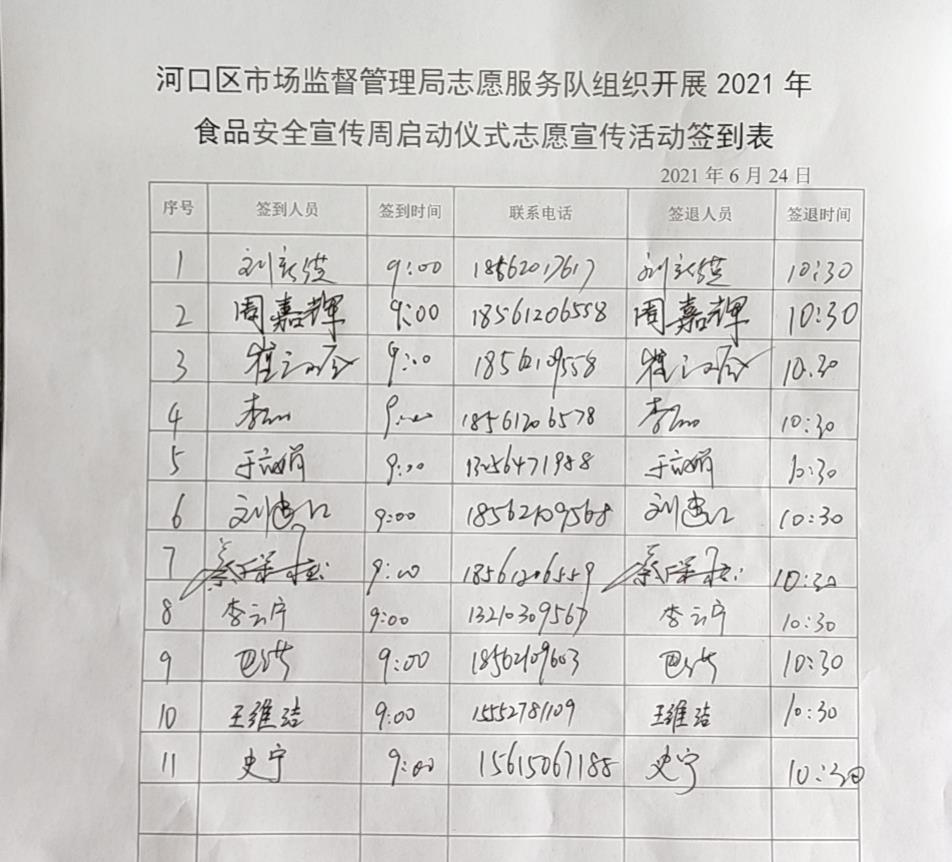 河口区市场监督管理局志愿服务队组织开展 2021 年
食品安全宣传周启动仪式志愿宣传活动签到表
2021 年 6 月 24 日
序号 签到人员 签到时间 联系电话 签退人员 签退时间
1 刘 9:00 18562017617 刘 10:30
2 周嘉辉 9:00 18561206558 周嘉辉 10:30
3 崔 9:00 18562109558 崔 10:30
4 李 9:00 18561206578 李 10:30
5 于 娟 9:00 13256471988 于 娟 10:30
6 刘建江 9:00 18562109568 刘建江 10:30
7 蔡 9:00 18561206559 蔡 10:30
8 李云宁 9:00 13210309567 李云宁 10:30
9 巴 9:00 18562109603 巴 10:30
10 王维洁 9:00 15552781109 王维洁 10:30
11 史宁 9:00 15615067188 史宁 10:30